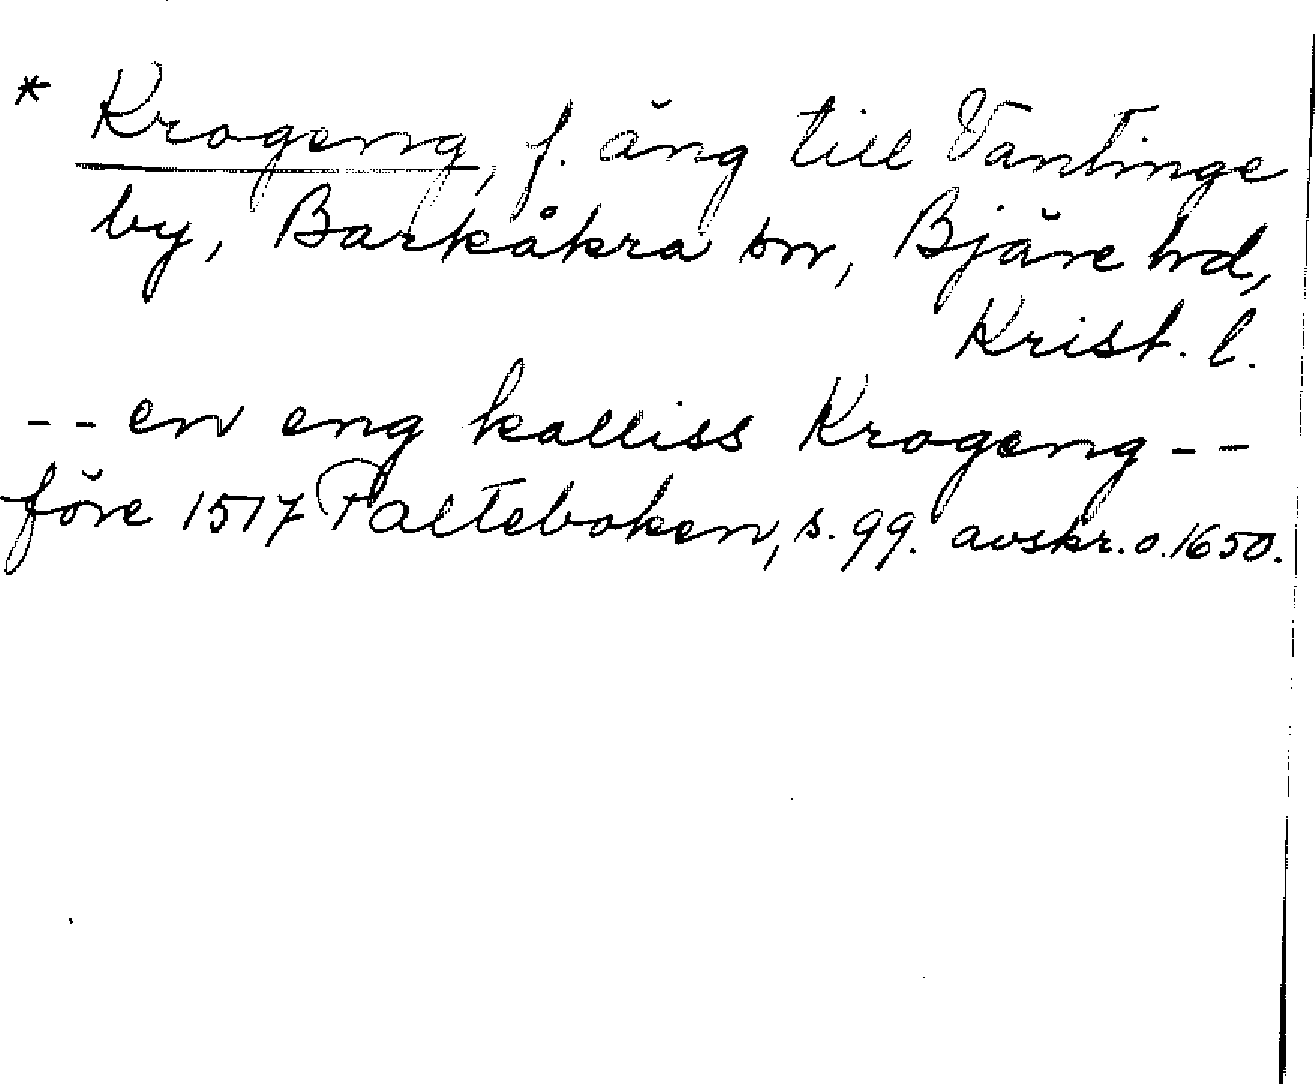 * Krogeng, f. äng till Vantinge
by, Barkåkra sn, Bjäre hd,
Krist. l.
-- en eng kalliss Krogeng --
före 1517 Palteboken, s. 99. avskr. o. 1650.